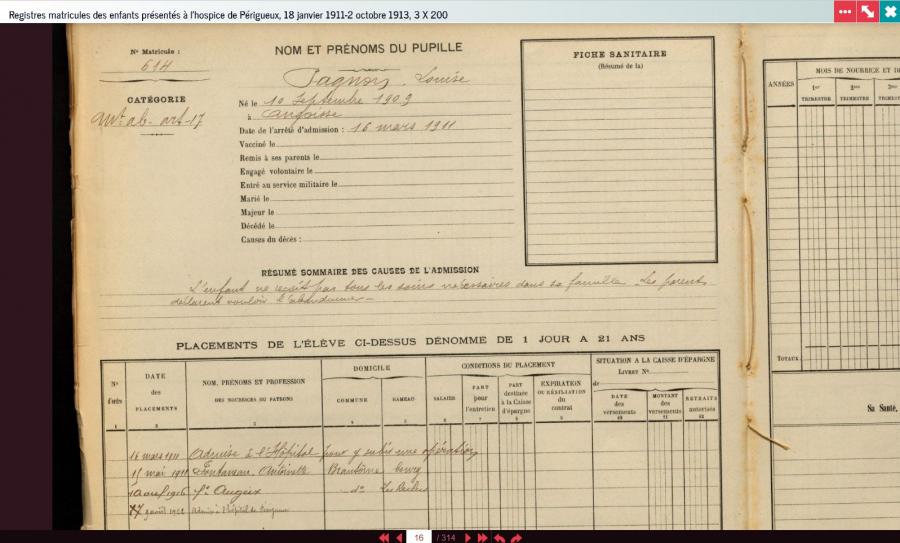 Registres matricules des enfants présentés à l'hospice de Périgueux, 18 janvier 1911-2 octobre 1913, 3 X 200
Nº Matricule :
614
CATÉGORIE
art-17
NOM ET PRÉNOMS DU PUPILLE
Louise
Né le 10 Septembre 1903
à Angoisse
Date de l'arrêté d'admission : 16 mars 1911
Vacciné le
Remis à ses parents le
Engagé volontaire le
Entré au service militaire le
Marié le
Majeur le
Décédé le
Causes du décès :
FICHE SANITAIRE
(Résumé de la)
RÉSUMÉ SOMMAIRE DES CAUSES DE L'ADMISSION
L'enfant ne reçoit pas tous les soins nécessaires dans sa famille. Les parents
déclarent vouloir l'abandonner
PLACEMENTS DE L'ÉLÈVE CI-DESSUS DÉNOMMÉ DE 1 JOUR A 21 ANS
Nº
d'ordre
DATE
des
PLACEMENTS
NOM, PRÉNOMS ET PROFESSION
DES NOURRICES OU PATRONS
DOMICILE
COMMUNE
HAMEAU
CONDITIONS DU PLACEMENT
SALAIRE
PART
pour
l'entretien
PART
destinée
à la Caisse
d'épargne
EXPIRATION
OU RÉSILIATION
du
contrat
SITUATION A LA CAISSE D'ÉPARGNE
LIVRET Nº
de
DATE
des
versements
MONTANT
des
versements
RETRAITS
autorisés
1 2 3 4 5 6 7 8 9 10 11 12
16 mars 1911 Admise à l'Hôpital pour y subir une opération
15 mai 1911 Antoinette Brantôme bourg
10 1916 Augeix dº
août 1922 Admis à l'hôpital de
ANNÉES
MOIS DE NOURRICE ET
1er
TRIMESTRE
2me
TRIMESTRE
TOTAUX
Sa Santé,
16 / 314